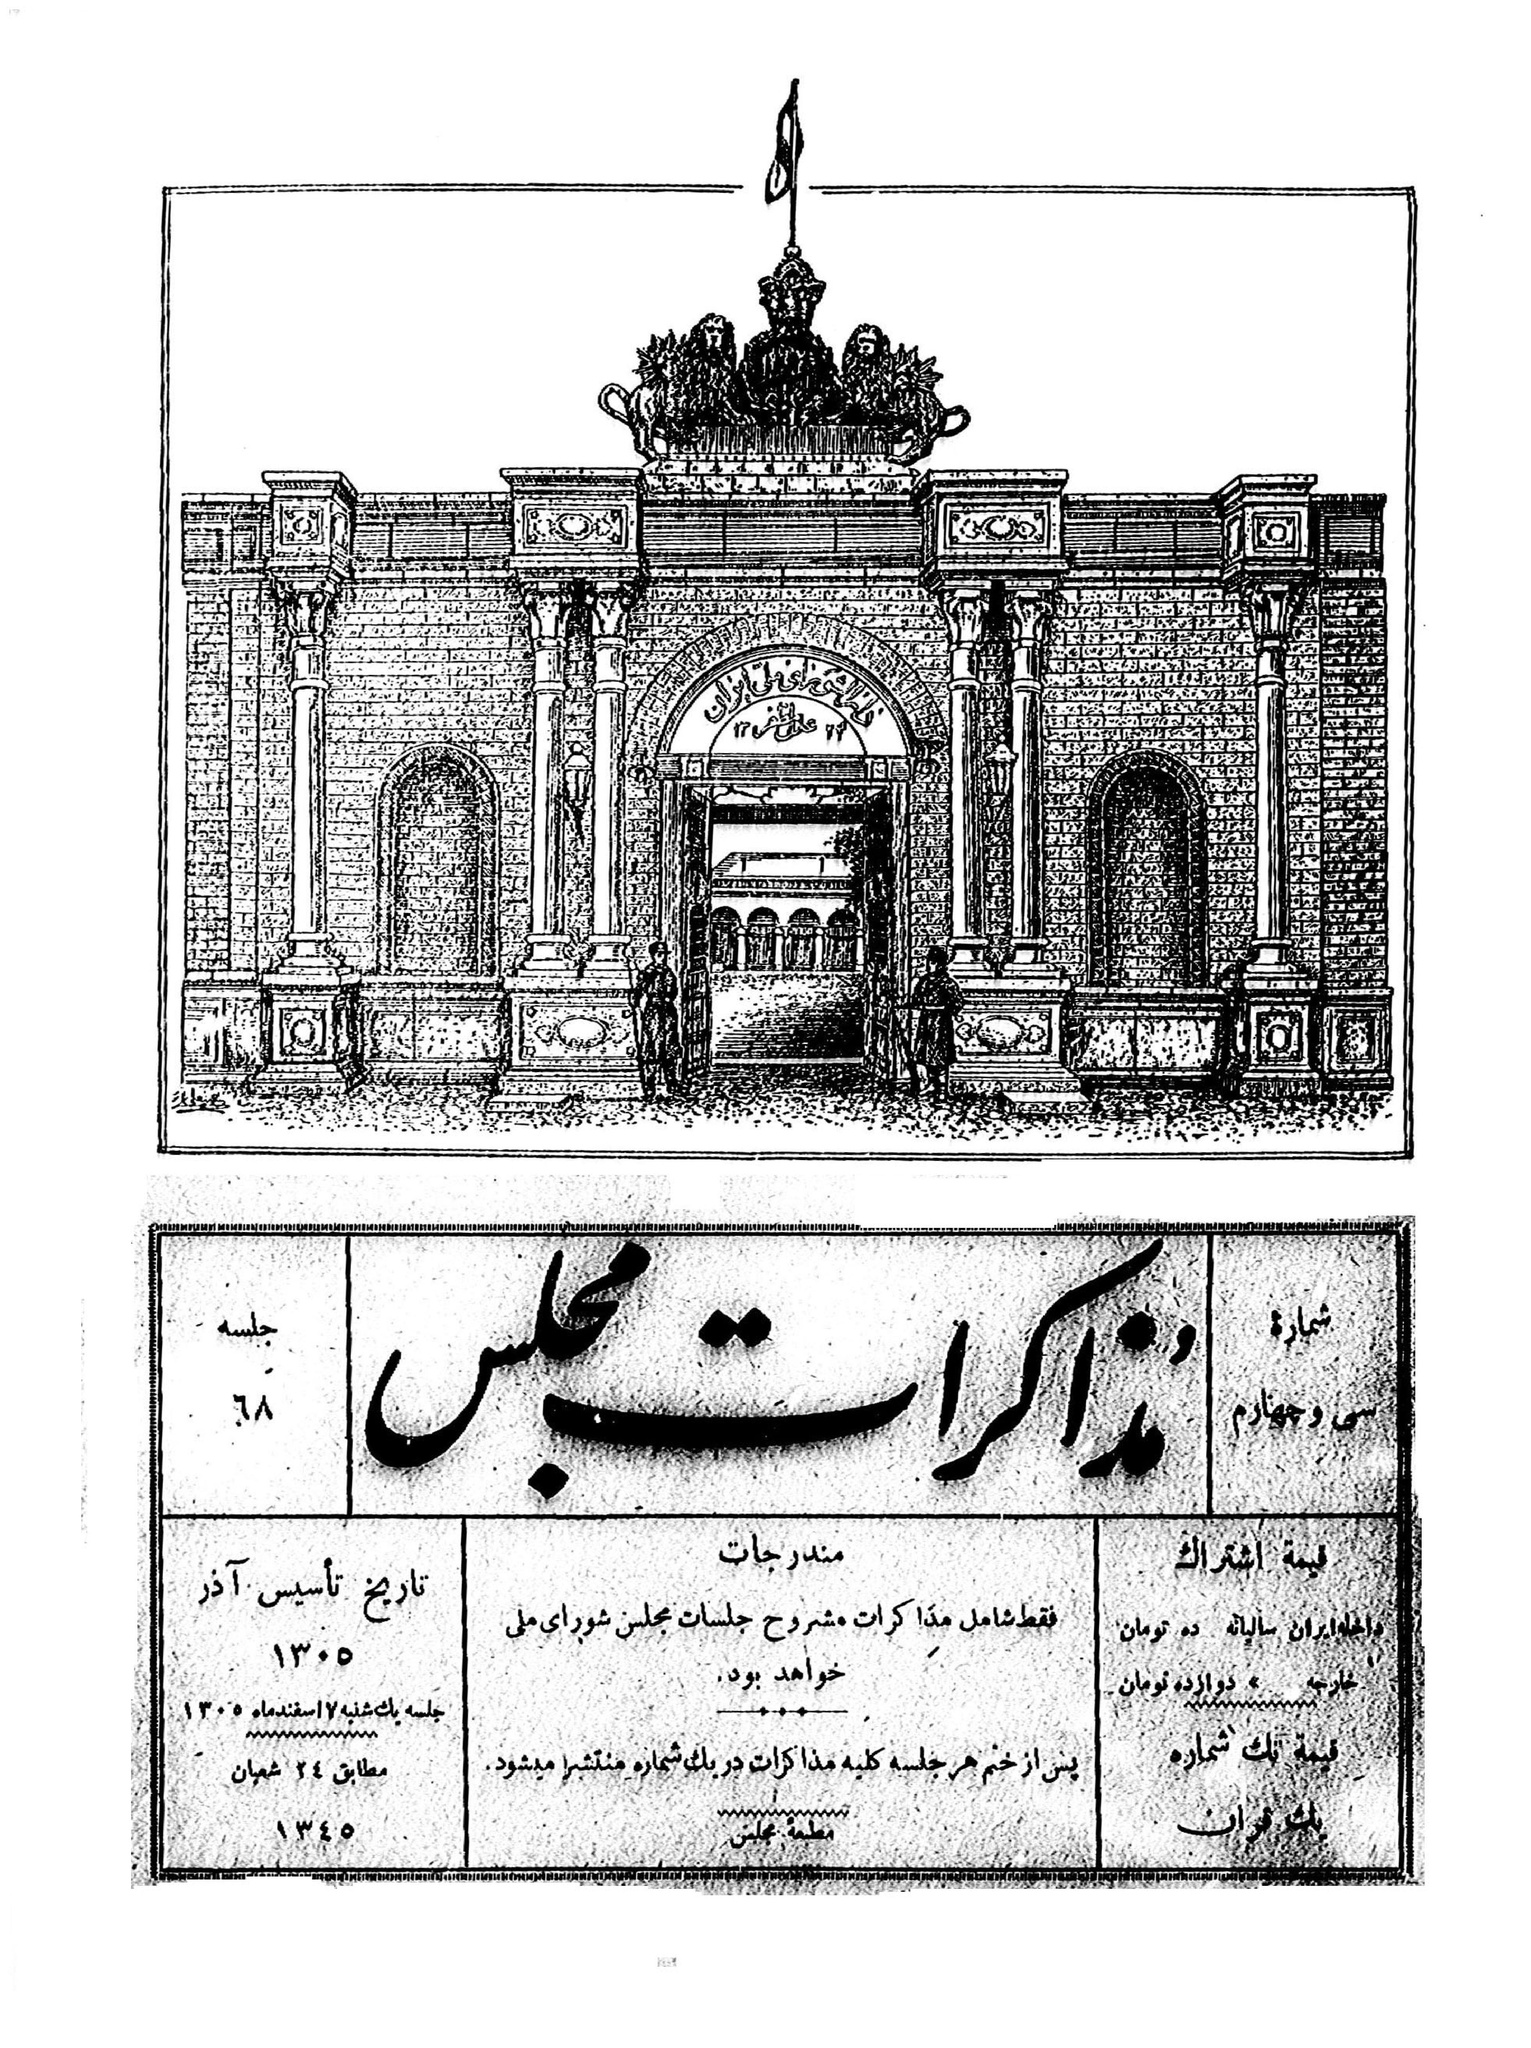 دارالشورای ملی ایران
عدل مظفر
مذاکرات مجلس
شمارهٔ
سی و چهارم
جلسه
٦٨
قیمة اشتراك
داخله ایران سالیانه ده تومان
خارجه » دوازده تومان
قیمة تك شماره
یك قران
مندرجات
فقط شامل مذاکرات مشروح جلسات مجلس شورای ملی
خواهد بود.
پس از ختم هر جلسه کلیه مذاکرات در یك شماره منتشر میشود.
مطبعهٔ مجلس
تاریخ تأسیس آذر
١٣٠٥
جلسه یك شنبه ٧ اسفند ماه ١٣٠٥
مطابق ٢٤ شعبان
١٣٤٥